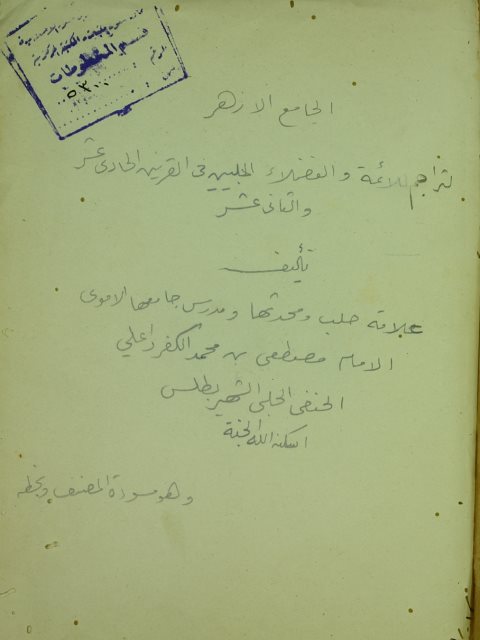 قسم المخطوطات
الرقم
٥٣
الجامع الازهر
لتراجم الائمة والفضلاء الحلبيين فى القرنين الحادى عشر
والثانى عشر
تأليف
علامة حلب ومحدثها ومدرس جامعها الاموى
الامام مصطفى بن محمد الكفرداعلي
الحنفى الحلبى الشهير بطلس
اسكنه الله الجنة
وهو مسودة المصنف وبخطه